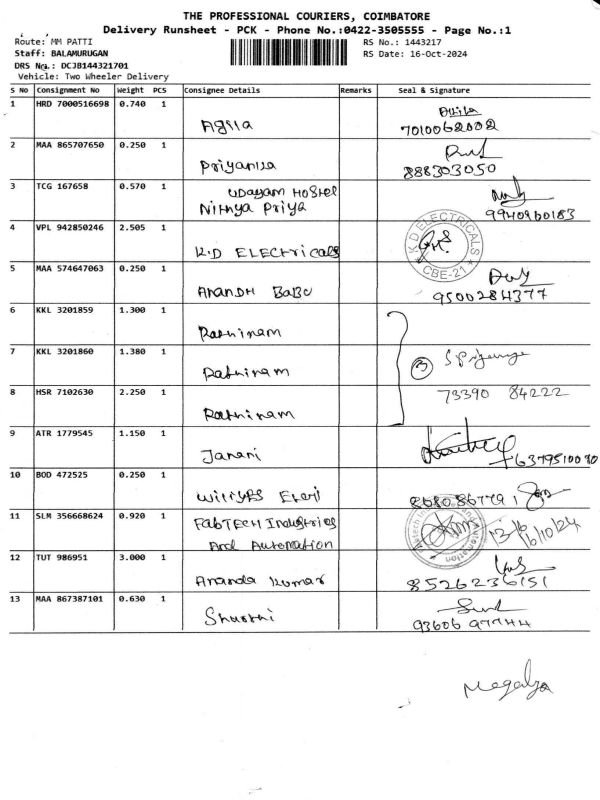 THE PROFESSIONAL COURIERS, COIMBATORE
Delivery Runsheet - PCK - Phone No.:0422-3505555 - Page No.:1
Route: MM PATTI
RS No.: 1443217
Staff: BALAMURUGAN
RS Date: 16-Oct-2024
DRS No.: DCJB144321701
Vehicle: Two Wheeler Delivery
S No Consignment No Weight PCS Consignee Details Remarks Seal & Signature
1 HRD 7000516698 0.740 1
Agila
7010062002
2 MAA 865707650 0.250 1
Priyanka
888303050
3 TCG 167658 0.570 1
Udayam Hostel
Nithya Priya
9940960183
4 VPL 942850246 2.505 1
K.D ELECtricals
K D ELECTRICALS
CBE-21
5 MAA 574647063 0.250 1
Anandh Babu
9500284377
6 KKL 3201859 1.300 1
Rathinam
7 KKL 3201860 1.380 1
Rathinam
3
8 HSR 7102630 2.250 1
Rathinam
73390 84222
9 ATR 1779545 1.150 1
Janani
10 BOD 472525 0.250 1
11 SLM 356668624 0.920 1
FabTECH Industries
And Automation
16/10/24
12 TUT 986951 3.000 1
Ananda Kumar
8526236151
13 MAA 867387101 0.630 1
93606 97744